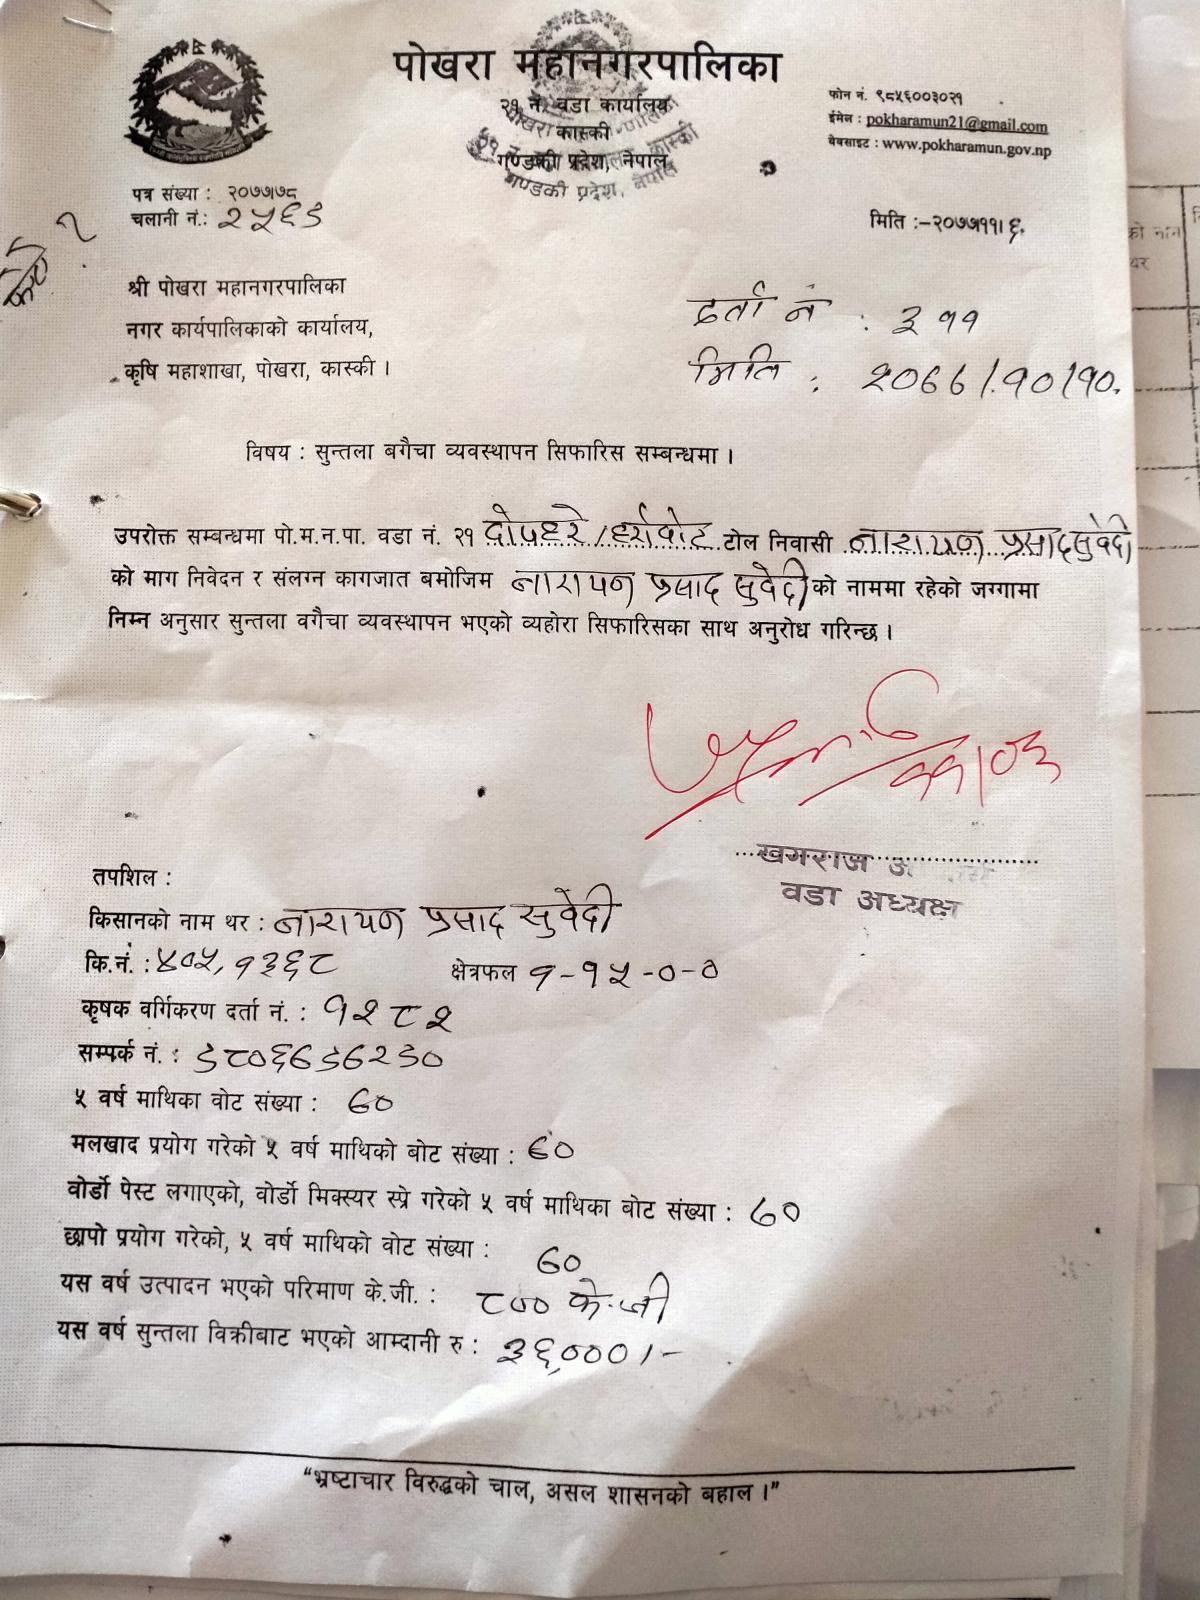 पोखरा महानगरपालिका
२१ नं. वडा कार्यालय
कास्की
गण्डकी प्रदेश, नेपाल
फोन नं. ९८५६००३०२१
ईमेल : pokharamun21@gmail.com
वेबसाइट : www.pokharamun.gov.np
पत्र संख्या : २०७७।७८
चलानी नं.: २५६९
मिति :-२०७७।११।६.
श्री पोखरा महानगरपालिका
नगर कार्यपालिकाको कार्यालय,
कृषि महाशाखा, पोखरा, कास्की ।
दर्ता नं : ३११
मिति : २०७७।१०।१०.
विषय : सुन्तला बगैचा व्यवस्थापन सिफारिस सम्बन्धमा ।
उपरोक्त सम्बन्धमा पो.म.न.पा. वडा नं. २१ दोपहरे / टोल निवासी नारायण प्रसाद सुवेदी
को माग निवेदन र संलग्न कागजात बमोजिम नारायण प्रसाद सुवेदी को नाममा रहेको जग्गामा
निम्न अनुसार सुन्तला वगैचा व्यवस्थापन भएको व्यहोरा सिफारिसका साथ अनुरोध गरिन्छ ।
खगराज
वडा अध्यक्ष
तपशिल :
किसानको नाम थर : नारायण प्रसाद सुवेदी
कि.नं. : ४०५, १३६८ क्षेत्रफल १-१५-०-०
कृषक वर्गिकरण दर्ता नं. : १२८२
सम्पर्क नं. : ९८०६७९७२९०
५ वर्ष माथिका वोट संख्या : ७०
मलखाद प्रयोग गरेको ५ वर्ष माथिको बोट संख्या : ७०
वोर्डो पेस्ट लगाएको, वोर्डो मिक्स्यर स्प्रे गरेको ५ वर्ष माथिका बोट संख्या : ७०
छापो प्रयोग गरेको, ५ वर्ष माथिको वोट संख्या : ७०
यस वर्ष उत्पादन भएको परिमाण के.जी. : ८०० के.जी
यस वर्ष सुन्तला विक्रीबाट भएको आम्दानी रु : ३६,०००।-
“भ्रष्टाचार विरुद्धको चाल, असल शासनको बहाल ।”